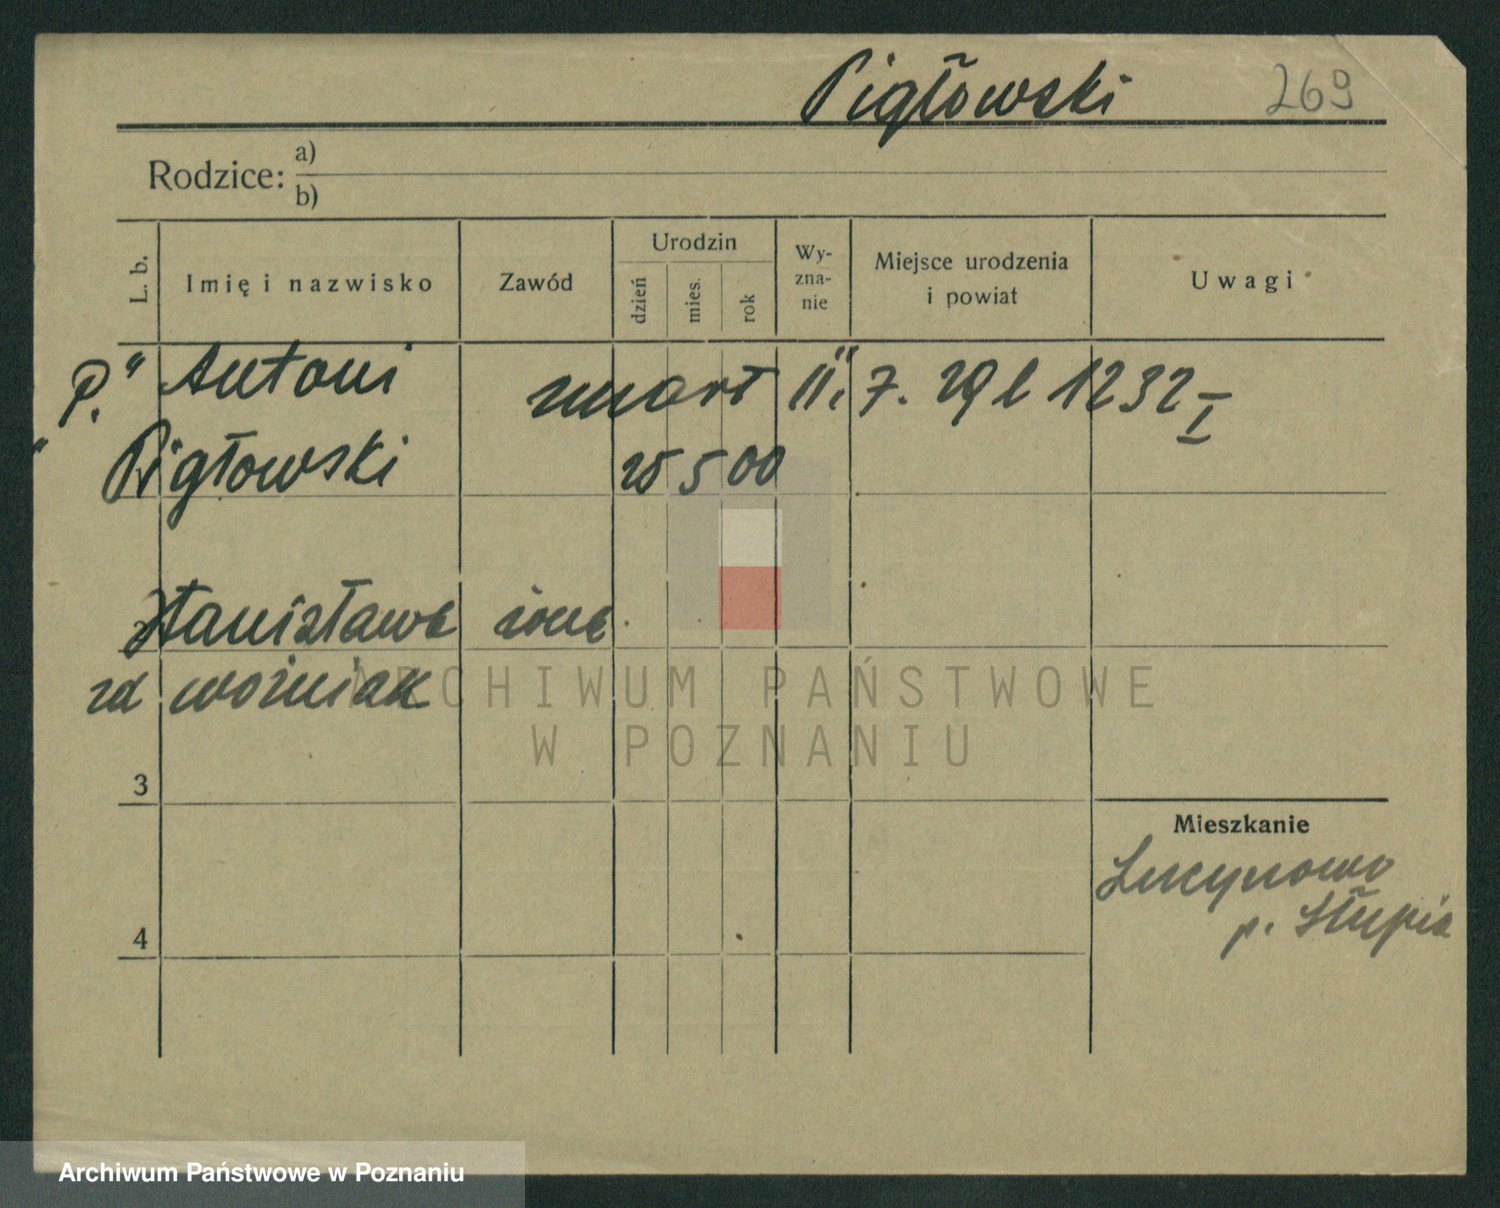 Pigłowski 269
Rodzice: a)
b)
L. b. Imię i nazwisko Zawód Urodzin dzień mies. rok Wyznanie Miejsce urodzenia i powiat Uwagi
"P." Antoni zmarł 11. 7. 29 l 1232 I
Pigłowski 25 5 00
Stanisława żona
zd Woźniak
3
Mieszkanie
Lucynowo
p. Słupia
4
ARCHIWUM PAŃSTWOWE
W POZNANIU
Archiwum Państwowe w Poznaniu